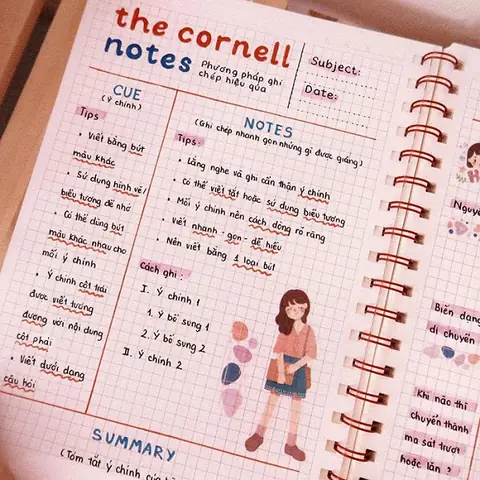 the cornell
notes
Phương pháp ghi
chép hiệu quả
Subject:
Date:
CUE
(ý chính)
Tips
• Viết bằng bút
màu khác
• Sử dụng hình vẽ/
biểu tượng để nhớ
• Có thể dùng bút
màu khác nhau cho
mỗi ý chính
• Ý chính cột trái
được viết tương
đương với nội dung
cột phải
• Viết dưới dạng
câu hỏi
NOTES
(Ghi chép nhanh gọn những gì được giảng)
Tips:
• Lắng nghe và ghi cẩn thận ý chính
• Có thể viết tắt hoặc sử dụng biểu tượng
• Mỗi ý chính nên cách dòng rõ ràng
• Viết nhanh - gọn - dễ hiểu
• Nên viết bằng 1 loại bút
Cách ghi:
I. Ý chính 1
1. Ý bổ sung 1
2. Ý bổ sung 2
II. Ý chính 2
SUMMARY
(Tóm tắt ý chính của
Nguyê
Biến dạng
di chuyển
Khi nào thì
chuyển thành
ma sát trượt
hoặc lăn?